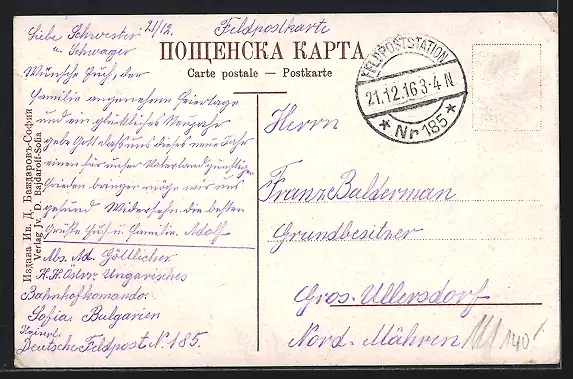 Feldpostkarte
21/12.
Liebe Schwester
u. Schwager
ПОЩЕНСКА КАРТА
Carte postale — Postkarte
Wünsche Euch, der
Familie angenehme Feiertage
und ein glückliches Neujahr
gebe Gott dass uns dieses neue Jahr
einen für unser Vaterland günstigen
Frieden bringen möge wir uns
gesund Widersehn die besten
Grüße Euch u. Familie. Adolf
Abs. Ad. Göttlicher
K.K. Österr. Ungarisches
Bahnhofkomando.
Sofia Bulgarien
Deutsche Feldpost No. 185.
Издава Ив. Д. Баждаровъ-София
Verlag Jv. D. Bajdaroff-Sofia
FELDPOSTSTATION
21.12.16 3-4 N
* Nr 185 *
Herrn
Franz Balderman
Grundbesitzer
Gros. Ullersdorf
Nord. Mähren
140